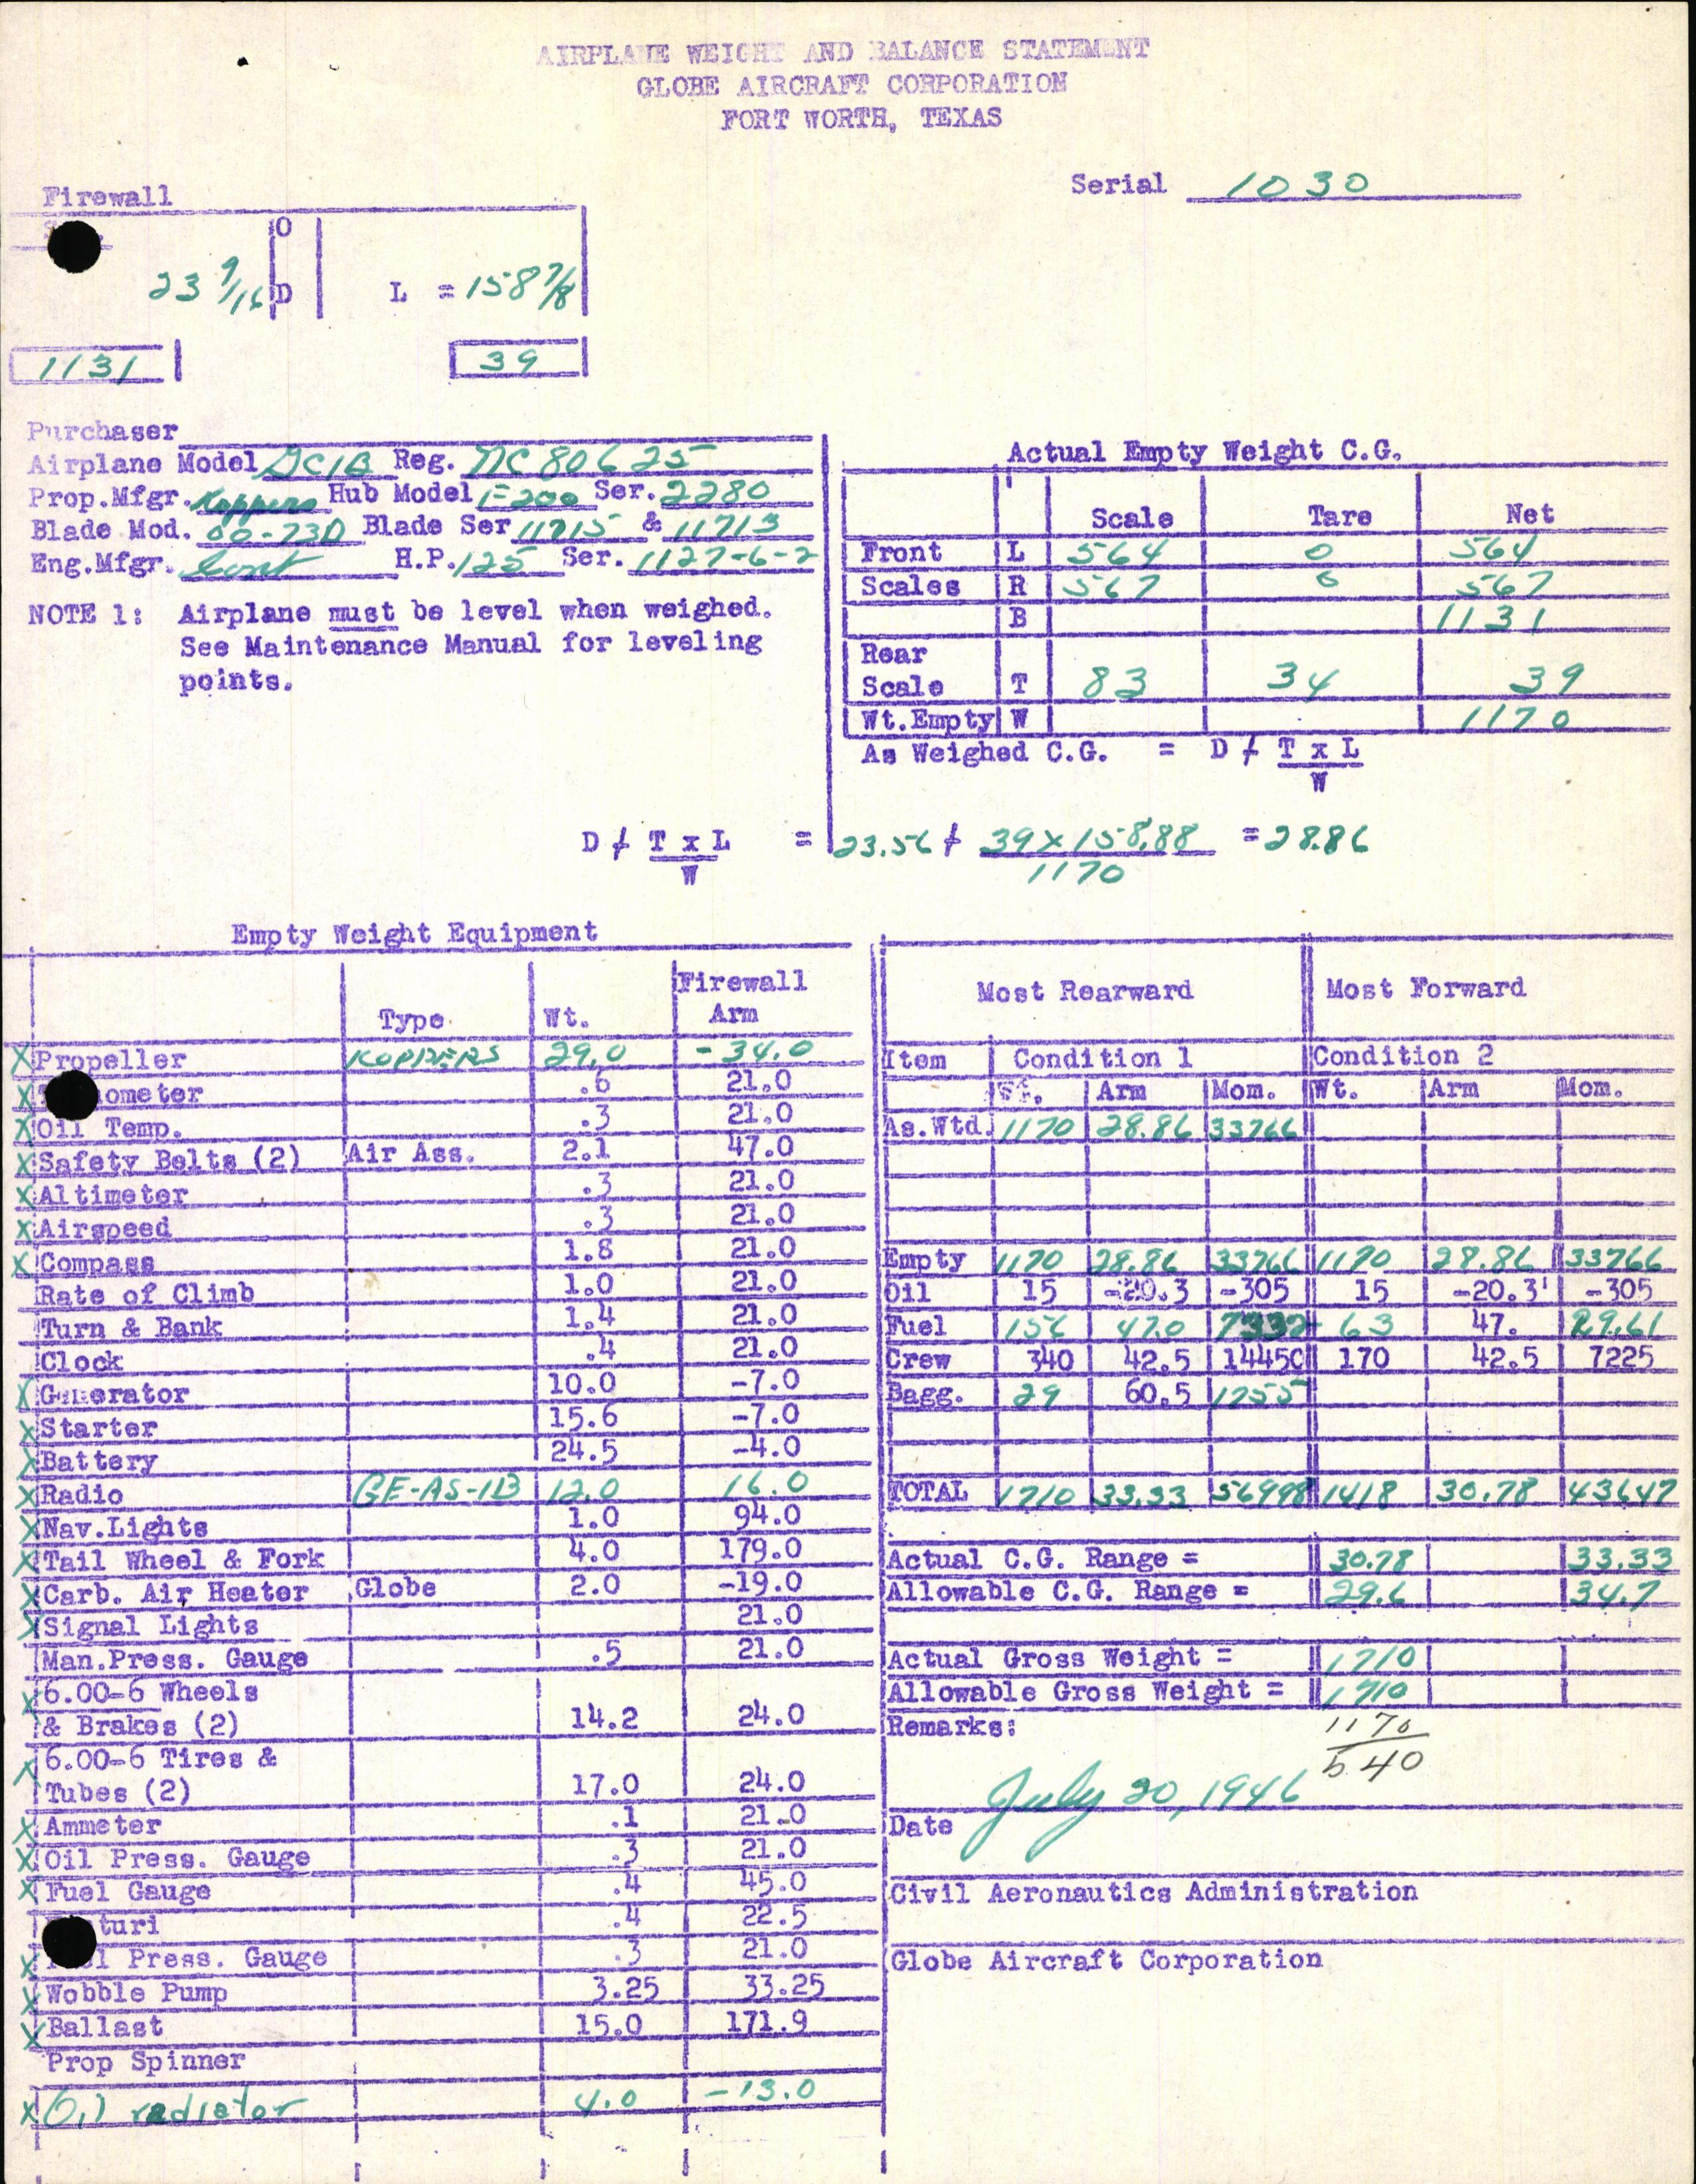 AIRPLANE WEIGHT AND BALANCE STATEMENT
GLOBE AIRCRAFT CORPORATION
FORT WORTH, TEXAS
Serial 1030
Firewall
O
23 9/16 D L = 158 7/8
1131 39
Purchaser
Airplane Model GC1B Reg. NC80625
Prop.Mfgr. Koppers Hub Model F-200 Ser. 2280
Blade Mod. 00-73D Blade Ser 11715 & 11713
Eng.Mfgr. Cont H.P. 125 Ser. 1127-6-2
NOTE 1: Airplane must be level when weighed.
See Maintenance Manual for leveling
points.
Actual Empty Weight C.G.
Scale Tare Net
Front L 564 0 564
Scales R 567 0 567
B 1131
Rear
Scale T 83 34 39
Wt.Empty W 1170
As Weighed C.G. = D + T x L
W
D + T x L = 23.56 + 39 x 158.88 = 28.86
W 1170
Empty Weight Equipment
Type Wt. Firewall
Arm
X Propeller KOPPERS 29.0 -34.0
X ometer .6 21.0
X Oil Temp. .3 21.0
X Safety Belts (2) Air Ass. 2.1 47.0
X Altimeter .3 21.0
X Airspeed .3 21.0
X Compass 1.8 21.0
Rate of Climb 1.0 21.0
Turn & Bank 1.4 21.0
Clock .4 21.0
X Generator 10.0 -7.0
X Starter 15.6 -7.0
X Battery 24.5 -4.0
X Radio GE-AS-1B 12.0 16.0
X Nav.Lights 1.0 94.0
X Tail Wheel & Fork 4.0 179.0
X Carb. Air Heater Globe 2.0 -19.0
X Signal Lights 21.0
Man.Press. Gauge .5 21.0
X 6.00-6 Wheels
& Brakes (2) 14.2 24.0
X 6.00-6 Tires &
Tubes (2) 17.0 24.0
X Ammeter .1 21.0
X Oil Press. Gauge .3 21.0
X Fuel Gauge .4 45.0
turi .4 22.5
X l Press. Gauge .3 21.0
X Wobble Pump 3.25 33.25
X Ballast 15.0 171.9
Prop Spinner
X Oil radiator 4.0 -13.0
Most Rearward Most Forward
Item Condition 1 Condition 2
Wt. Arm Mom. Wt. Arm Mom.
As.Wtd. 1170 28.86 33766
Empty 1170 28.86 33766 1170 28.86 33766
Oil 15 -20.3 -305 15 -20.3 -305
Fuel 156 47.0 7332 63 47. 29.61
Crew 340 42.5 14450 170 42.5 7225
Bagg. 29 60.5 1755
TOTAL 1710 33.33 56998 1418 30.78 43647
Actual C.G. Range = 30.78 33.33
Allowable C.G. Range = 29.6 34.7
Actual Gross Weight = 1710
Allowable Gross Weight = 1710
Remarks: 1170
540
Date July 20, 1946
Civil Aeronautics Administration
Globe Aircraft Corporation